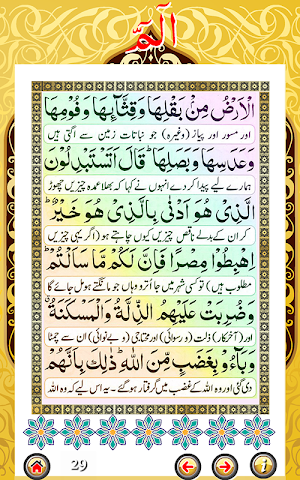 الٓمّٓ
الْاَرْضُ مِنْۢ بَقْلِهَا وَقِثَّآئِهَا وَفُوْمِهَا
اور مسور اور پیاز (وغیرہ) جو نباتات زمین سے اگتی ہیں
وَعَدَسِهَا وَبَصَلِهَا ؕ قَالَ اَتَسْتَبْدِلُوْنَ
ہمارے لیے پیدا کر دے انہوں نے کہا کہ بھلا عمدہ چیزیں چھوڑ
الَّذِيْ هُوَ اَدْنٰى بِالَّذِيْ هُوَ خَيْرٌ ؕ
کر ان کے بدلے ناقص چیزیں کیوں چاہتے ہو (اگر یہی چیزیں
اِهْبِطُوْا مِصْرًا فَاِنَّ لَكُمْ مَّا سَاَلْتُمْ ؕ
مطلوب ہیں) تو کسی شہر میں جا اترو وہاں جو مانگتے ہو مل جائے گا
وَضُرِبَتْ عَلَيْهِمُ الذِّلَّةُ وَالْمَسْكَنَةُ ۗ
اور (آخرکار) ذلت (و رسوائی) اور محتاجی (و بے نوائی) ان سے چمٹا
وَبَآءُوْ بِغَضَبٍ مِّنَ اللّٰهِ ؕ ذٰلِكَ بِاَنَّهُمْ
دی گئی اور وہ اللہ کے غضب میں گرفتار ہو گئے۔ یہ اس لیے کہ وہ اللہ
29
i